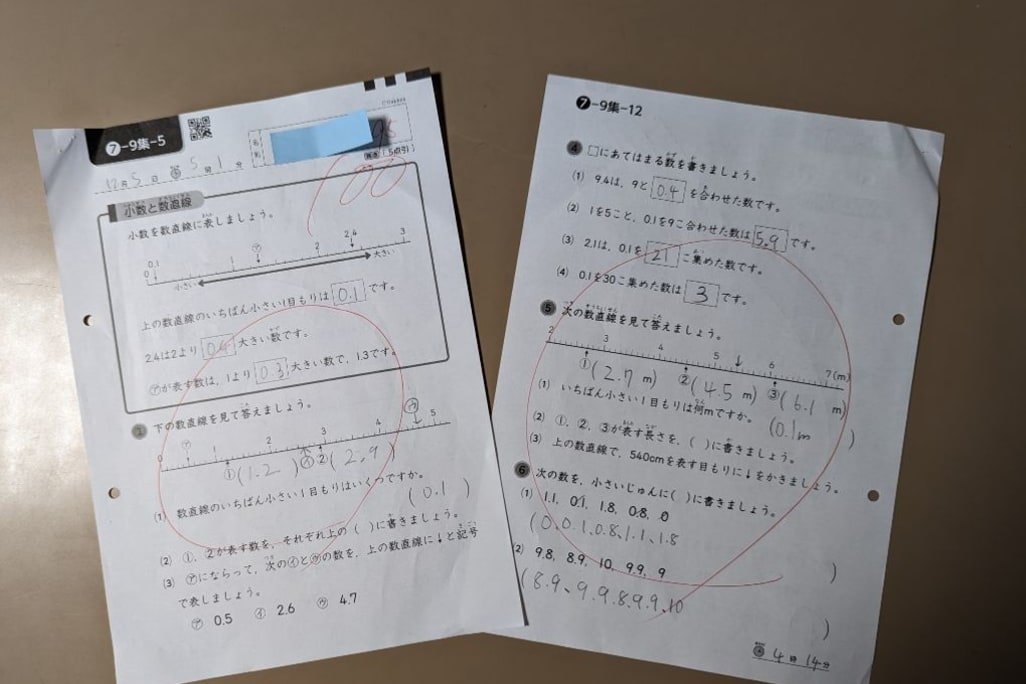 7-9集-5
12月5日 5時1分
98
100
小数と数直線
小数を数直線に表しましょう。
0 0.1 1 ㋐ 2 2.4 3
小さい 大きい
上の数直線のいちばん小さい1目もりは 0.1 です。
2.4は2より 0.4 大きい数です。
㋐が表す数は、1より 0.3 大きい数で、1.3です。
1 下の数直線を見て答えましょう。
㋒
0 ㋐ 1 2 3 4 5
①(1.2) ㋑ ②(2.9)
(1) 数直線のいちばん小さい1目もりはいくつですか。
(0.1)
(2) ①、②が表す数を、それぞれ上の( )に書きましょう。
(3) ㋐にならって、次の㋑と㋒の数を、上の数直線に↓と記号
で表しましょう。
㋐ 0.5 ㋑ 2.6 ㋒ 4.7
7-9集-12
4 □にあてはまる数を書きましょう。
(1) 9.4は、9と 0.4 を合わせた数です。
(2) 1を5こと、0.1を9こ合わせた数は 5.9 です。
(3) 2.1は、0.1を 21 こ集めた数です。
(4) 0.1を30こ集めた数は 3 です。
5 次の数直線を見て答えましょう。
2 3 4 5 6 7(m)
①(2.7 m) ②(4.5 m) ③(6.1 m)
(1) いちばん小さい1目もりは何mですか。
(0.1m )
(2) ①、②、③が表す長さを、( )に書きましょう。
(3) 上の数直線で、540cmを表す目もりに↓をかきましょう。
6 次の数を、小さいじゅんに( )に書きましょう。
(1) 1.1、0.1、1.8、0.8、0
(0、0.1、0.8、1.1、1.8 )
(2) 9.8、8.9、10、9.9、9
(8.9、9、9.8、9.9、10 )
4時14分